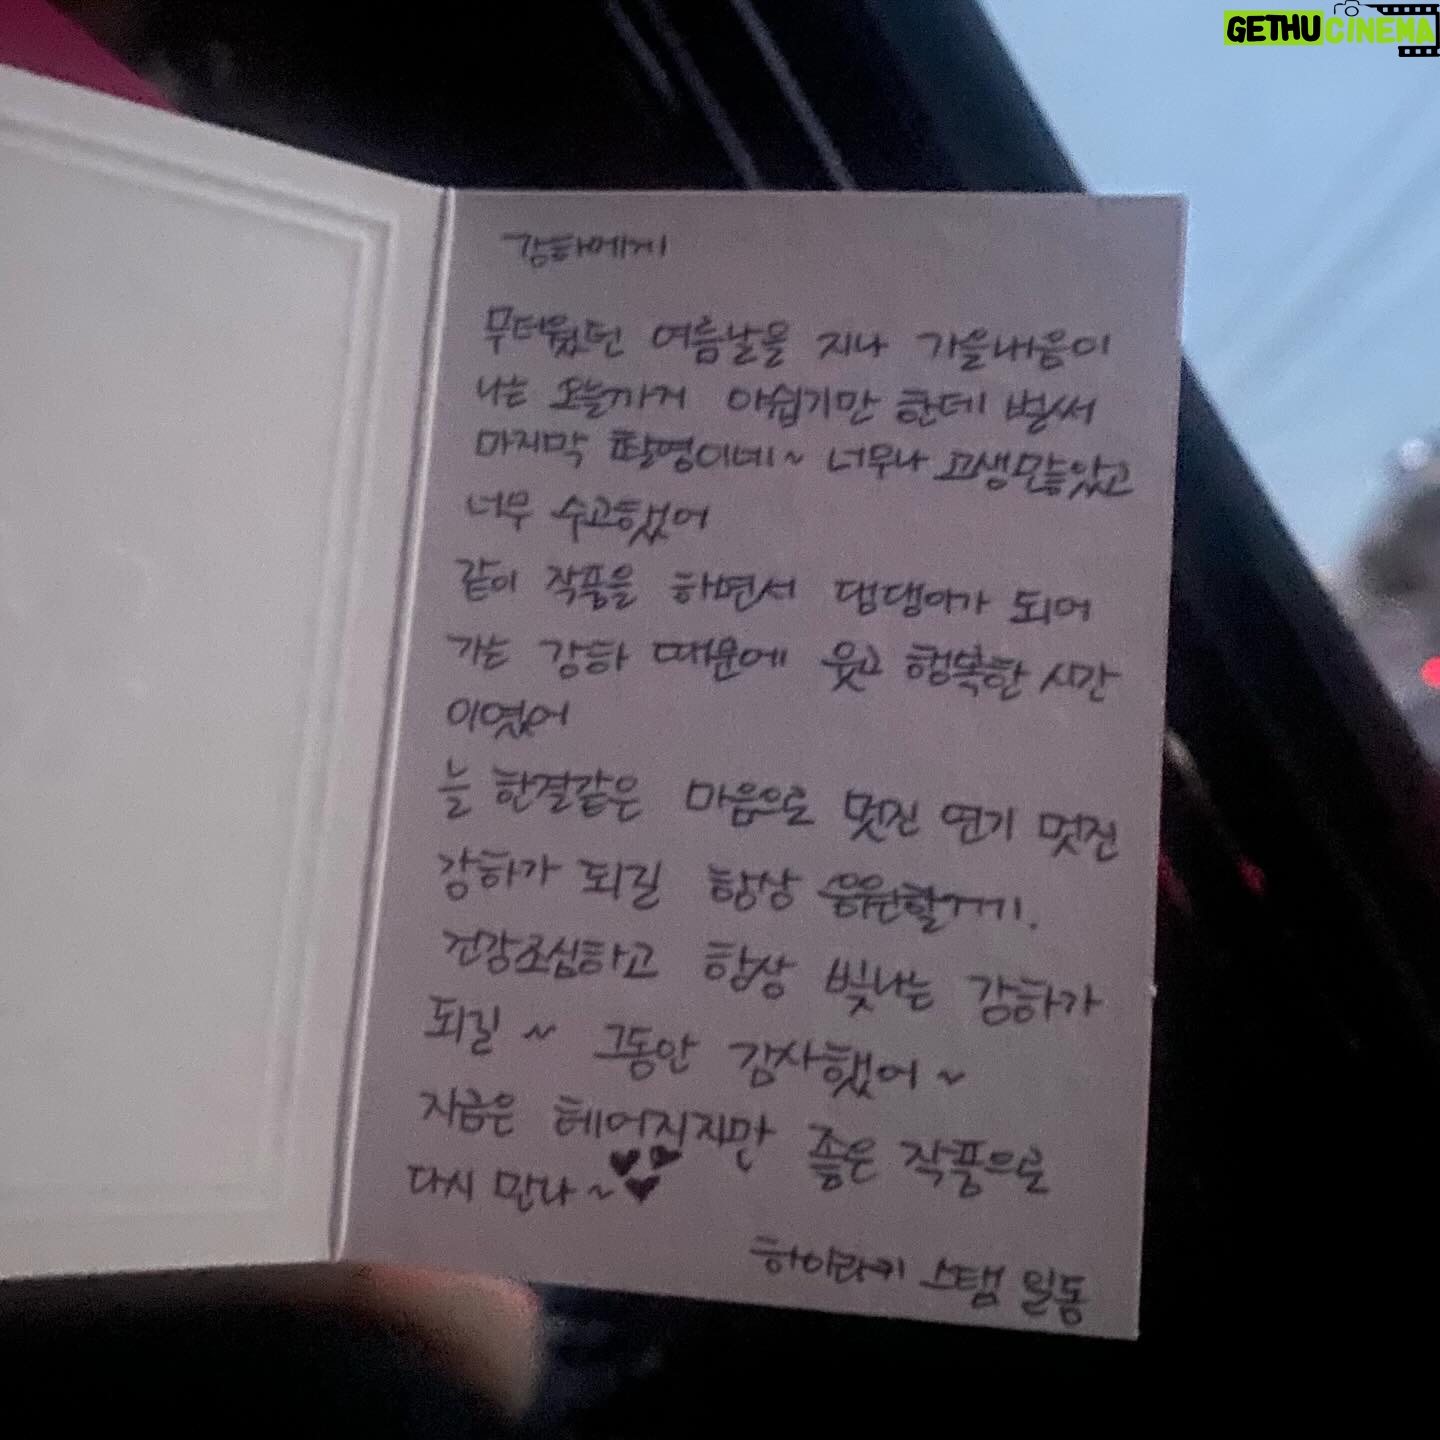 GETHUCINEMA
강하에게
무더웠던 여름날을 지나 가을내음이
나는 오늘까지 아쉽기만 한데 벌써
마지막 촬영이네~ 너무나 고생많았고
너무 수고했어
같이 작품을 하면서 댕댕이가 되어
가는 강하 때문에 웃고 행복한 시간
이였어
늘 한결같은 마음으로 멋진 연기 멋진
강하가 되길 항상 응원할게.
건강조심하고 항상 빛나는 강하가
되길 ~ 그동안 감사했어~
지금은 헤어지지만 좋은 작품으로
다시 만나~
하이라키 스탭 일동